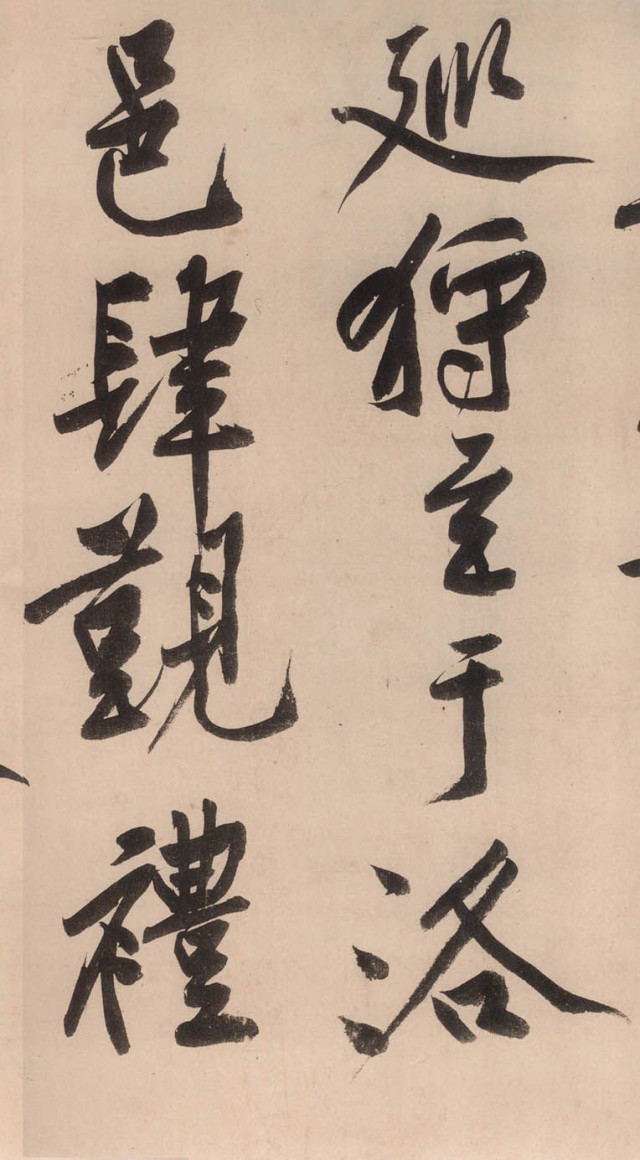 廵狩至于洛
邑肆覲禮